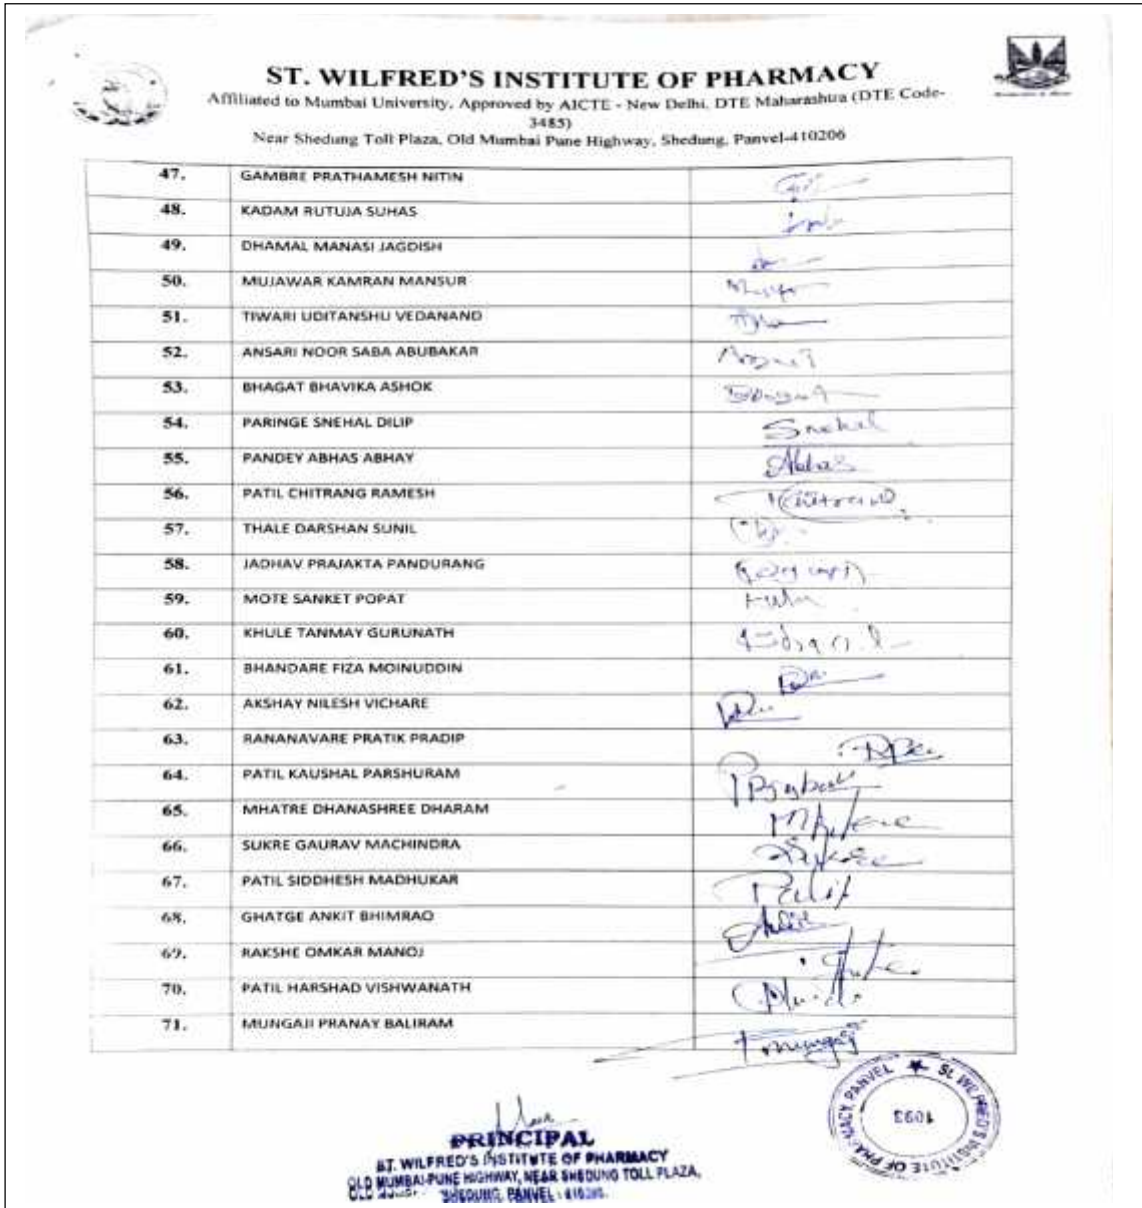 ST. WILFRED'S INSTITUTE OF PHARMACY
Affiliated to Mumbai University, Approved by AICTE - New Delhi, DTE Maharashtra (DTE Code-
3485)
Near Shedung Toll Plaza, Old Mumbai Pune Highway, Shedung, Panvel-410206
47. GAMBRE PRATHAMESH NITIN
48. KADAM RUTUJA SUHAS
49. DHAMAL MANASI JAGDISH
50. MUJAWAR KAMRAN MANSUR
51. TIWARI UDITANSHU VEDANAND
52. ANSARI NOOR SABA ABUBAKAR
53. BHAGAT BHAVIKA ASHOK
54. PARINGE SNEHAL DILIP Snehal
55. PANDEY ABHAS ABHAY Abhas
56. PATIL CHITRANG RAMESH
57. THALE DARSHAN SUNIL
58. JADHAV PRAJAKTA PANDURANG
59. MOTE SANKET POPAT
60. KHULE TANMAY GURUNATH
61. BHANDARE FIZA MOINUDDIN
62. AKSHAY NILESH VICHARE
63. RANANAVARE PRATIK PRADIP
64. PATIL KAUSHAL PARSHURAM
65. MHATRE DHANASHREE DHARAM
66. SUKRE GAURAV MACHINDRA
67. PATIL SIDDHESH MADHUKAR
68. GHATGE ANKIT BHIMRAO
69. RAKSHE OMKAR MANOJ
70. PATIL HARSHAD VISHWANATH
71. MUNGAJI PRANAY BALIRAM
PRINCIPAL
ST. WILFRED'S INSTITUTE OF PHARMACY
OLD MUMBAI-PUNE HIGHWAY, NEAR SHEDUNG TOLL PLAZA,
SHEDUNG, PANVEL - 410206.
ST. WILFRED'S INSTITUTE OF PHARMACY, PANVEL
1093